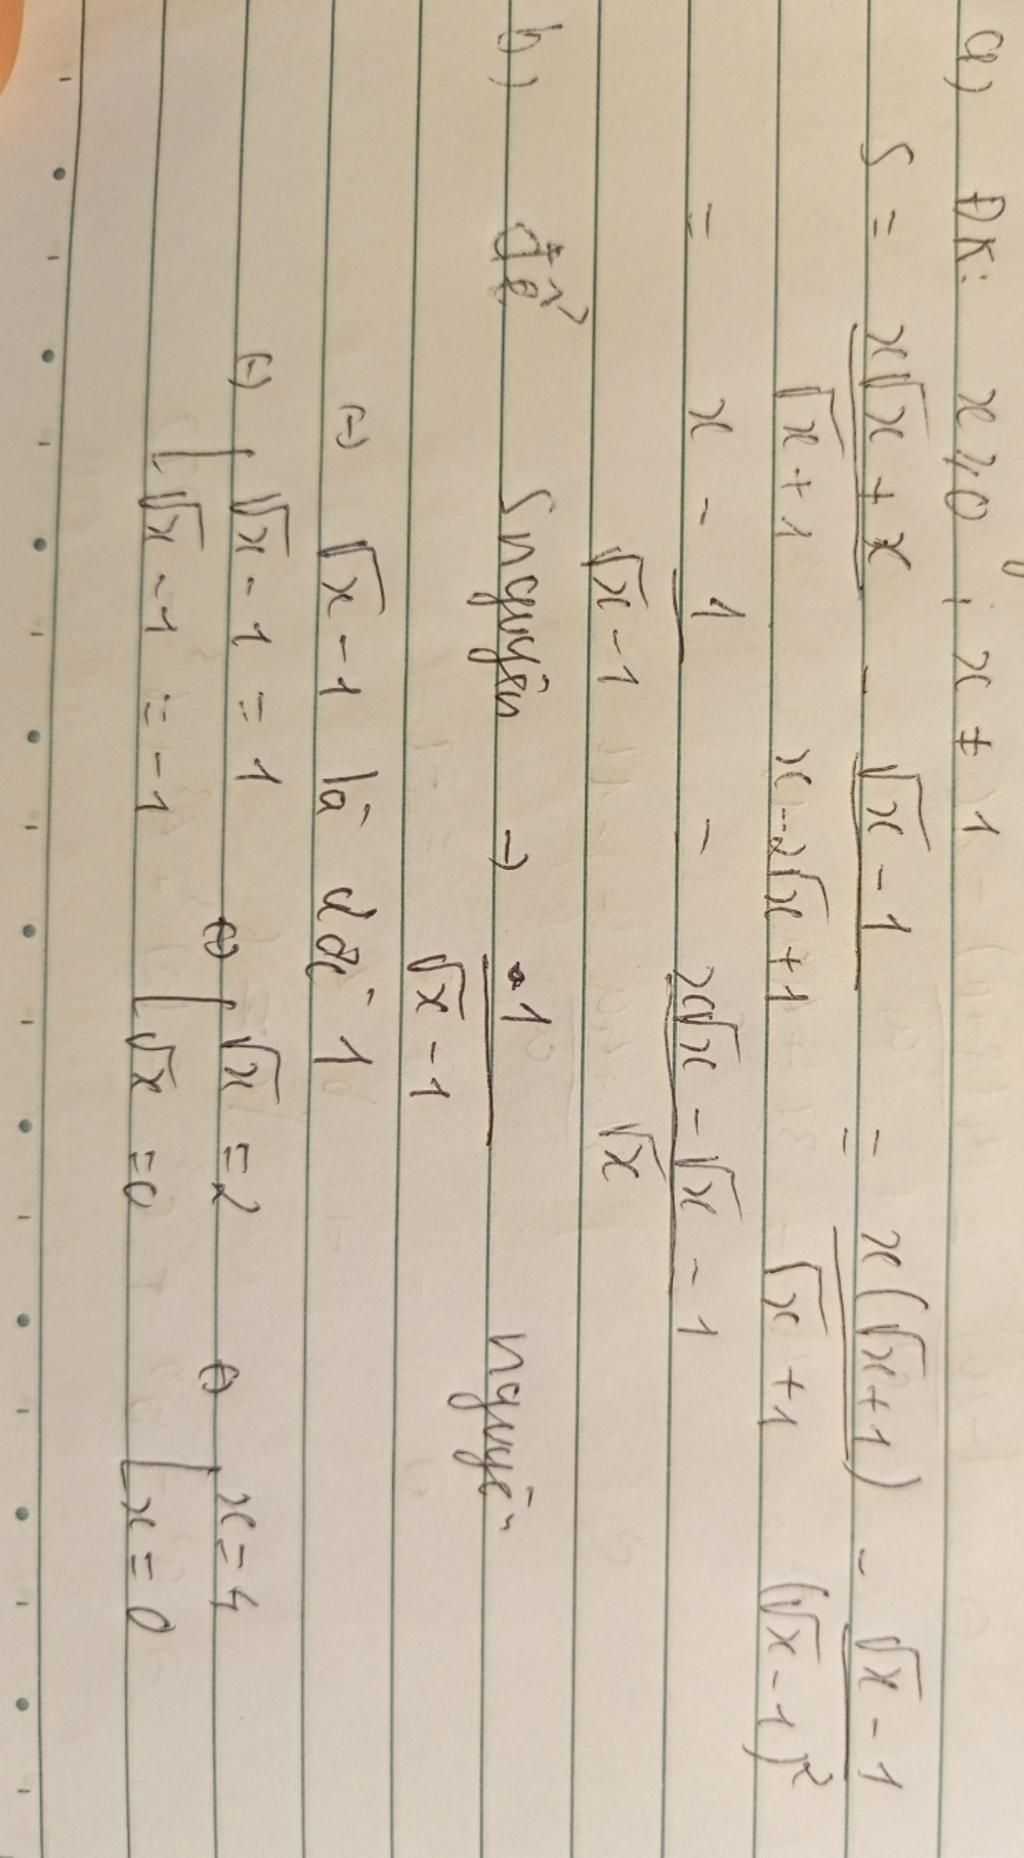 a) ĐK: x ≥ 0 ; x ≠ 1
S = (x√x + x)/(√x + 1) - (√x - 1)/(x - 2√x + 1) = x(√x + 1)/(√x + 1) - (√x - 1)/(√x - 1)²
= x - 1/(√x - 1) - (x√x - √x - 1)/√x
b) để S nguyên → 1/(√x - 1) nguyên
(-) √x - 1 là ước 1
(-) [ √x - 1 = 1 (-) [ √x = 2 (-) [ x = 4
√x - 1 = -1 √x = 0 x = 0